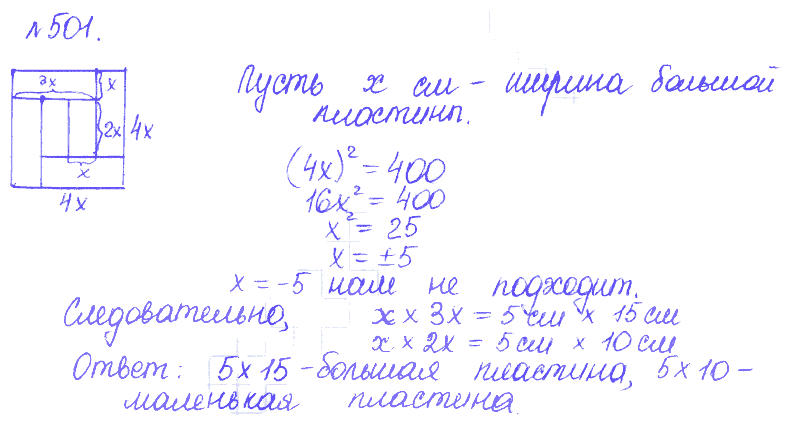 №501.
3x
x
2x
4x
x
4x
Пусть x см – ширина большой
пластины.
(4x)² = 400
16x² = 400
x² = 25
x = ±5
x = -5 нам не подходит.
Следовательно, x × 3x = 5 см × 15 см
x × 2x = 5 см × 10 см
Ответ: 5×15 – большая пластина, 5×10 –
маленькая пластина.